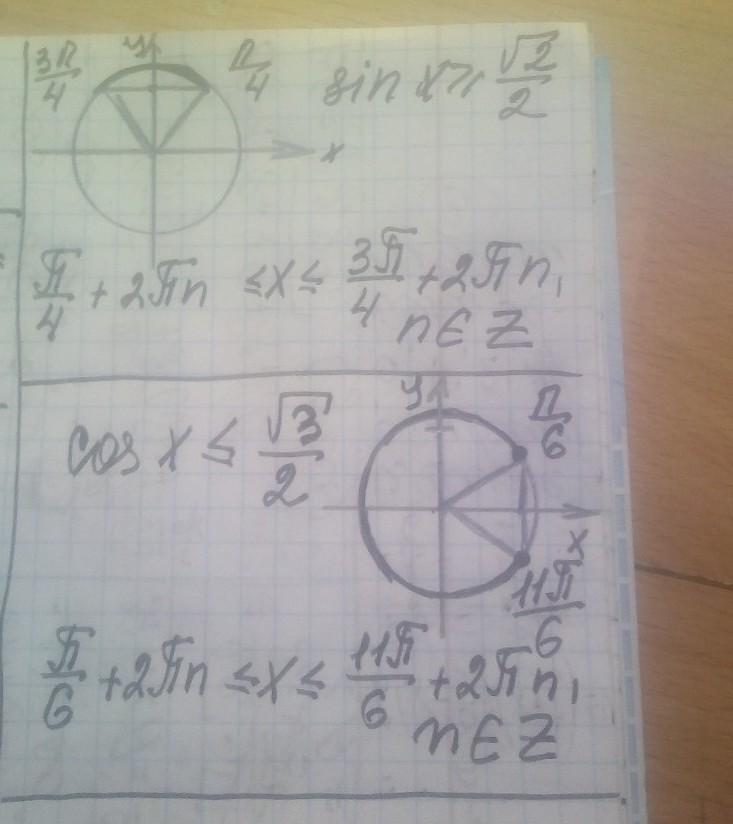 3π/4 y π/4 sin x ≥ √2/2
x
π/4 + 2πn ≤ x ≤ 3π/4 + 2πn,
n ∈ Z
cos x ≤ √3/2 y π/6
x
11π/6
π/6 + 2πn ≤ x ≤ 11π/6 + 2πn,
n ∈ Z